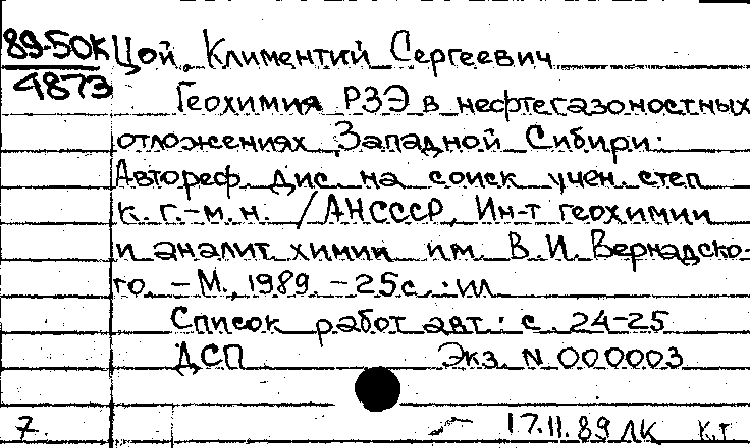 89-50К Цой, Климентий Сергеевич
4873
Геохимия РЗЭ в нефтегазоностных
отложениях Западной Сибири:
Автореф. дис. на соиск. учен. степ
к. г.-м. н. /АНСССР, Ин-т геохимии
и аналит. химии им. В. И. Вернадско-
го. – М., 1989. – 25с. : ил
Список работ авт.: с. 24-25
ДСП Экз. N 000003
7. 17.11.89 ЛК К.т